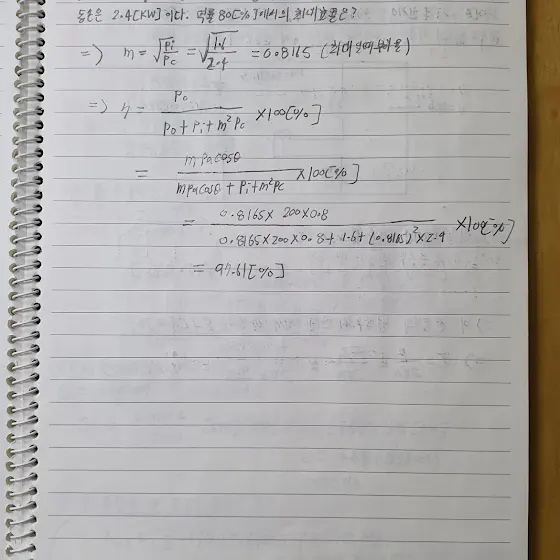 동손은 2.4[KW]이다. 역률 80[%]에서의 최대효율은?
=> m = √(Pi/Pc) = √(1.6/2.4) = 0.8165 (최대 부하율)
=> η = Pc / (Po + Pi + m²Pc) × 100[%]
= mPacosθ / (mPacosθ + Pi + m²Pc) × 100[%]
= 0.8165 × 200 × 0.8 / (0.8165 × 200 × 0.8 + 1.6 + (0.8165)² × 2.4) × 100[%]
= 97.61[%]